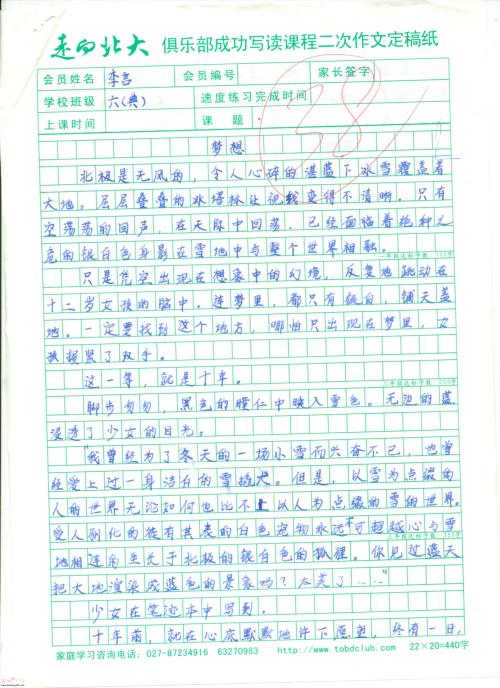 走向北大 俱乐部成功写读课程二次作文定稿纸
会员姓名 李言 会员编号 家长签字
学校班级 六(典) 速度练习完成时间
上课时间 课 题
38
梦想
北极是无风的，令人心碎的湛蓝下冰雪覆盖着
大地。层层叠叠的水塔林让视线变得不清晰。只有
空荡荡的回声，在天际中回荡。已经面临着绝种之
危的银白色身影在雪地中与整个世界相融。
一年级达标字数 100字
只是凭空出现在想象中的幻境，反复地跳动在
十二岁女孩的脑中。连梦里，都只有银白，铺天盖
地。一定要找到这个地方，哪怕只出现在梦里，女
孩握紧了双手。
这一等，就是十年。
二年级达标字数 200字
脚步匆匆，黑色的瞳仁中映入雪色。无边的蓝
浸透了少女的目光。
“我曾经为了冬天的一场小雪而兴奋不已，也曾
经爱上过一身洁白的雪橇犬。但是，以雪为点缀的
人的世界无论如何也比不上以人为点缀的雪的世界。
受人别化的徒有其表的白色宠物永远不可超越心与雪
三年级达标字数 350字
地相连而生长于北极的银白色的狐狸。你见过蓝天
把大地渲染成蓝色的景象吗？太美了……”
少女在笔迹本中写到。
十年前，就在心底默默地许下愿望，终有一日，
家庭学习咨询电话：027-87234916 63270983 http://www.tobdclub.com 22×20=440字